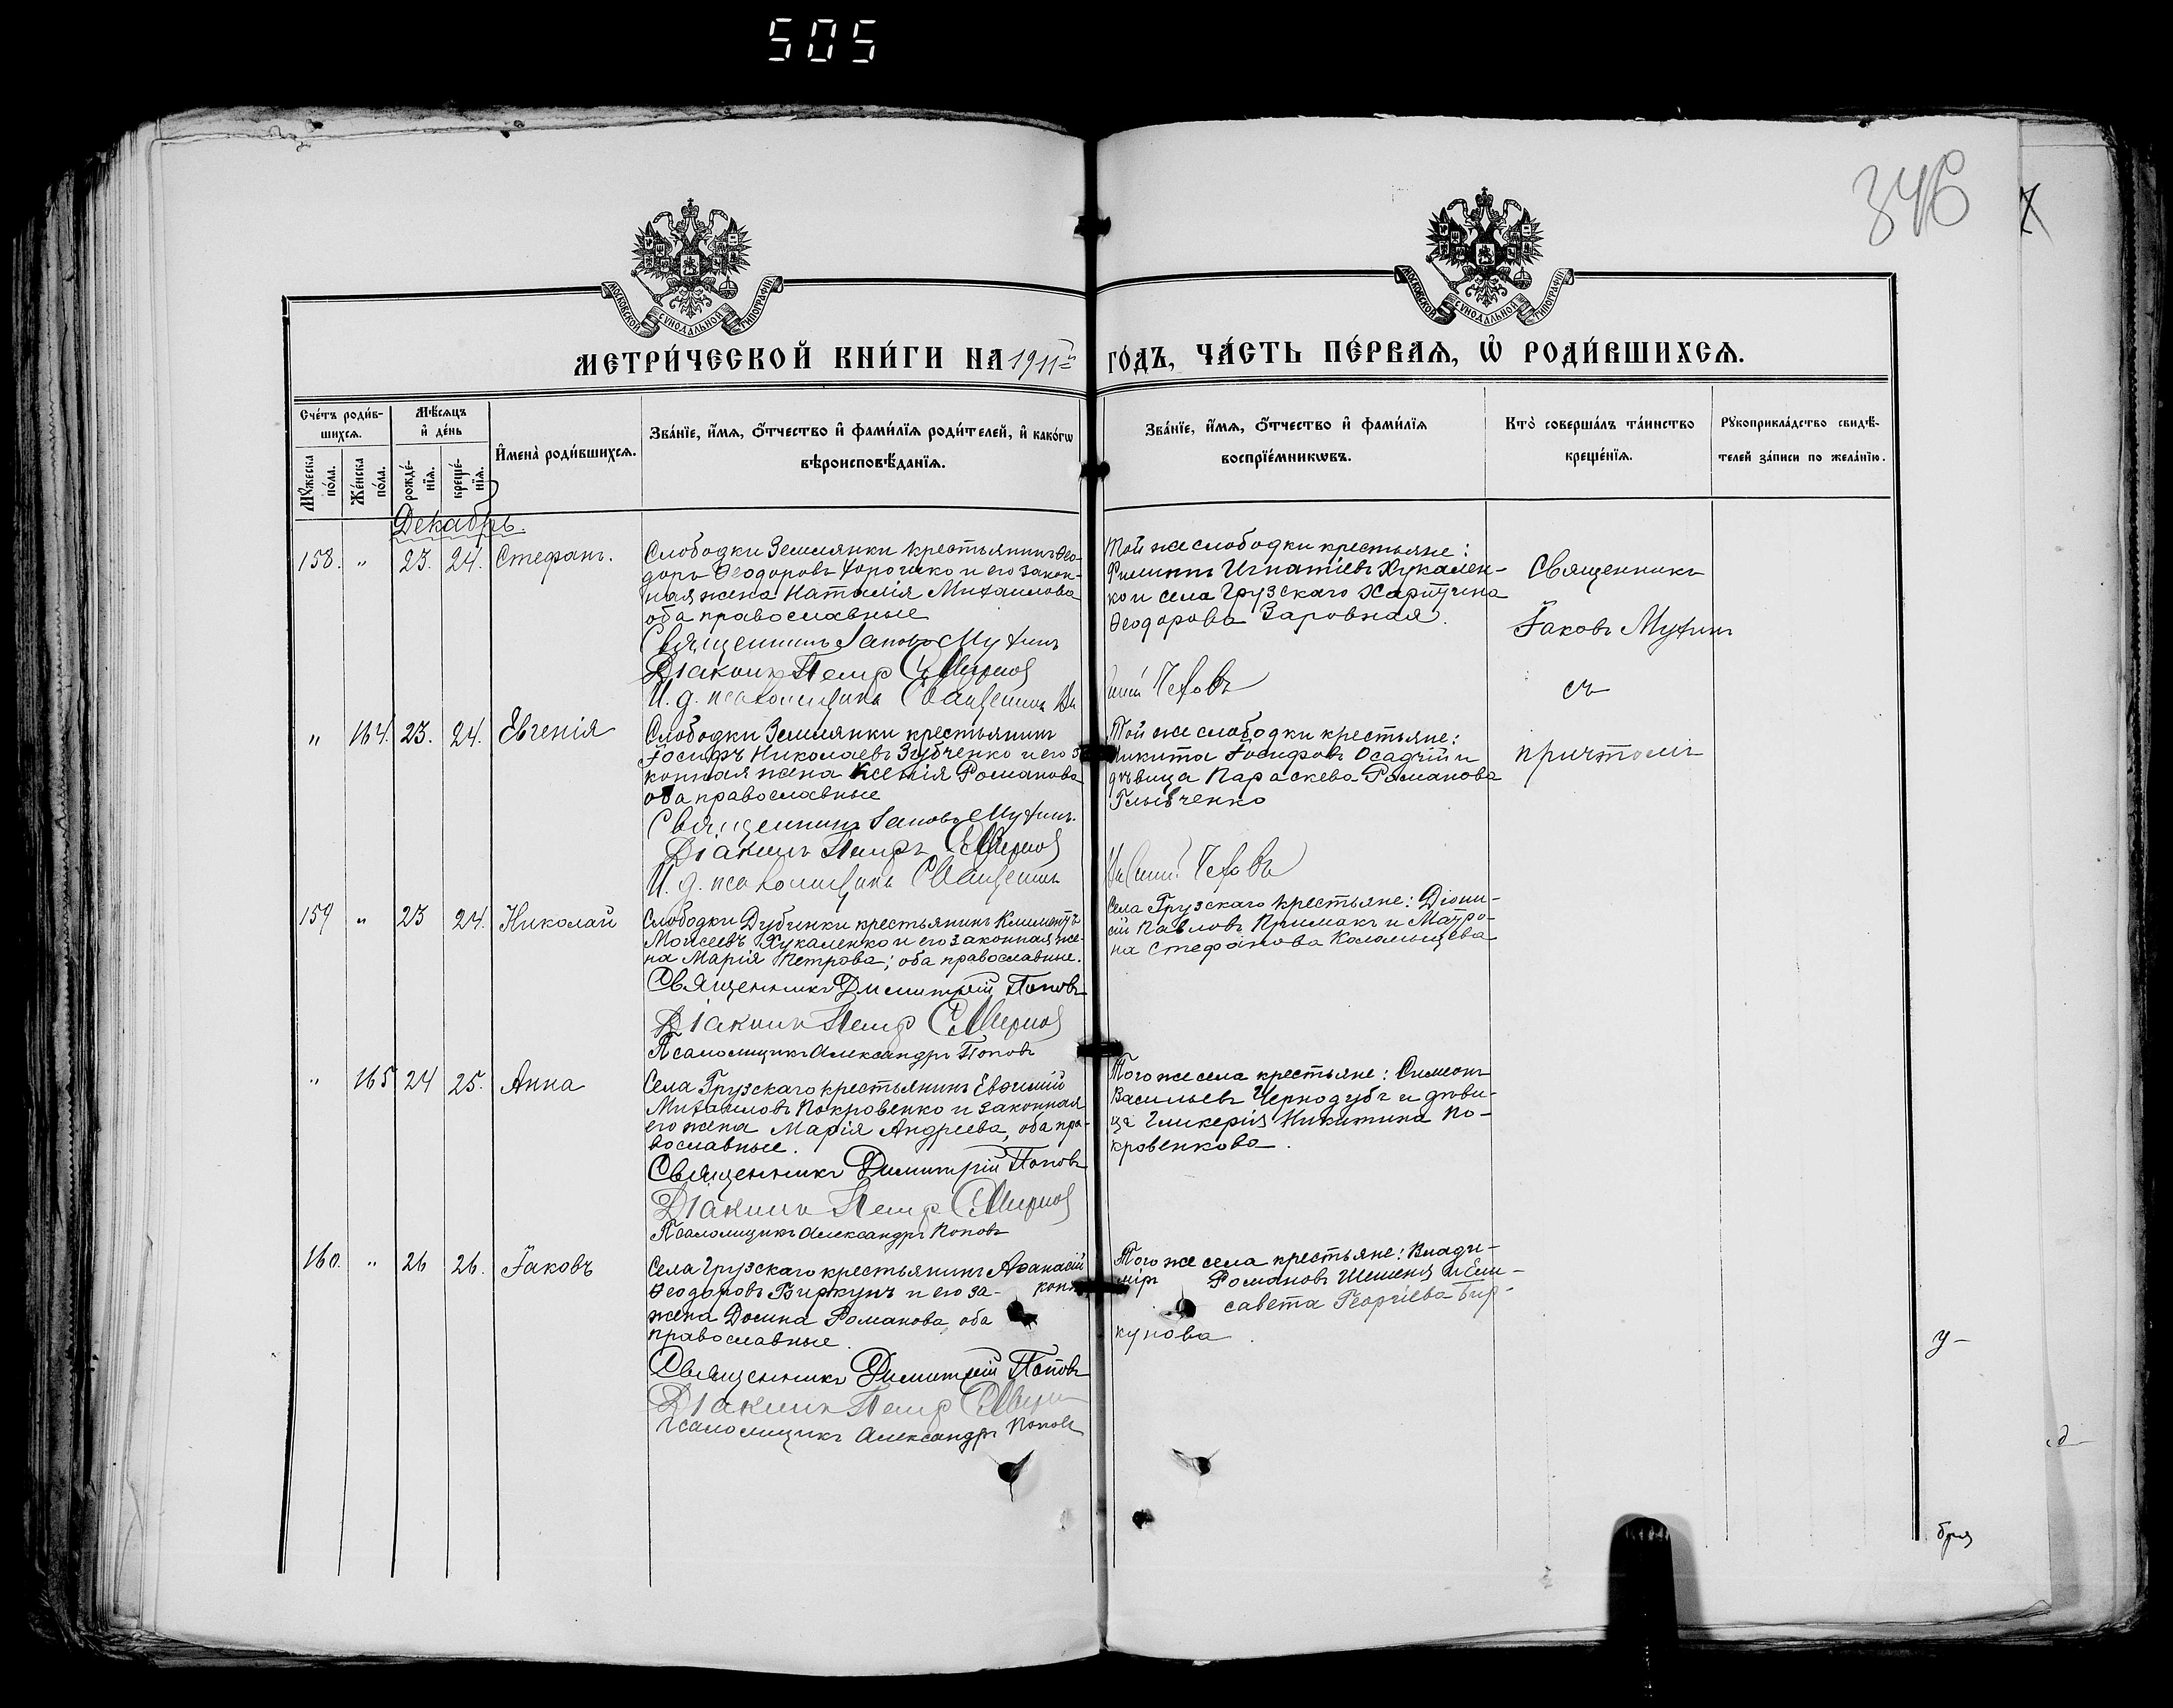 505
346
МОСКОВСКОЙ СѴНОДАЛЬНОЙ ТИПОГРАФІИ
МОСКОВСКОЙ СѴНОДАЛЬНОЙ ТИПОГРАФІИ
МЕТРИ́ЧЕСКОЙ КНИ́ГИ НА 1911й ГО́ДЪ, ЧА́СТЬ ПЕ́РВАѦ, Ѽ РОДИ́ВШИХСѦ.
Сче́тъ роди́в-
шихсѧ.
Мꙋ́жеска по́ла.
Же́нска по́ла.
Мѣ́сѧцъ
и҆ де́нь
рожде́-
нїѧ.
креще́-
нїѧ.
И҆мена̀ роди́вшихсѧ.
Зва́нїе, и҆́мѧ, ѻ҆́тчество и҆ фами́лїѧ роди́телей, и҆ како́гѡ
вѣроисповѣ́данїѧ.
Зва́нїе, и҆́мѧ, ѻ҆́тчество и҆ фами́лїѧ
воспрїе́мникѡвъ.
Кто̀ соверша́лъ та́инство
креще́нїѧ.
Рꙋкоприкла́дство свидѣ́-
телей за́писи по жела́нїю.
Декабрь.
158. " 23. 24. Стефанъ.
Слободки Землянки крестьянинъ Ѳео-
доръ Ѳеодоровъ Хорошко и его закон-
ная жена Наталія Михаилова
оба православные
Священникъ Іаковъ Мухинъ
Діаконъ Петръ Смирнов
И. д. псаломщика Священникъ
Той же слободки крестьяне:
Филиппъ Игнатіевъ Хукален-
ко и села Грузскаго Харитина
Ѳеодорова Заровная.
Чеховъ
Священникъ
Іаковъ Мухинъ
съ
причтомъ
" 164. 23. 24. Евгенія
Слободки Землянки крестьянинъ
Іосифъ Николаевъ Зубченко и его за
конная жена Ксенія Романова
оба православные
Священникъ Іаковъ Мухинъ.
Діаконъ Петръ Смирнов
И. д. псаломщика Священникъ
Той же слободки крестьяне:
Никита Іосифовъ Осадчій и
дѣвица Параскева Романова
Глывченко
Чеховъ
159 " 23 24. Николай
Слободки Дубинки крестьянинъ Климентъ
Моисеевъ Хукаленко и его законная же-
на Марія Петрова; оба православные.
Священникъ Димитрій Поповъ
Діаконъ Петръ Смирнов
Псаломщикъ Александръ Поповъ
Села Грузскаго крестьяне: Діони-
сій Павловъ Примакъ и Матро-
на Стефанова Коломыцева
" 165 24 25. Анна
Села Грузскаго крестьянинъ Евѳимій
Михаиловъ Покровенко и законная
его жена Марія Андреева, оба пра-
вославные.
Священникъ Димитрій Поповъ
Діаконъ Петръ Смирнов
Псаломщикъ Александръ Поповъ
Того же села крестьяне: Симеонъ
Васильевъ Чернодубъ и дѣви-
ца Гликерія Никитина По-
кровенкова.
160. " 26 26. Іаковъ
Села Грузскаго крестьянинъ Аѳанасій
Ѳеодоровъ Биркунъ и его за- конн
жена Домна Романова, оба
православные.
Священникъ Димитрій Поповъ
Діаконъ Петръ
Псаломщикъ Александръ Поповъ
Того же села крестьяне: Влади-
міръ Романовъ Шешеня и Ели-
савета Георгіева Бир-
кунова.
у-
бря